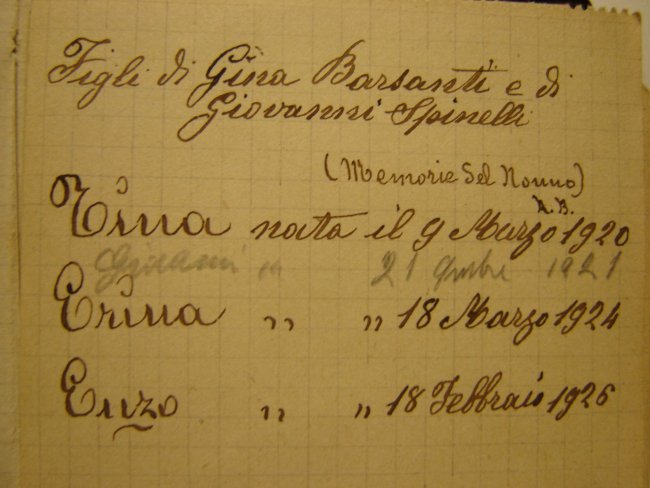 Figli di Gina Barsanti e di
Giovanni Spinelli
(Memorie del Nonno)
A.B.
Tina nata il 9 Marzo 1920
Giovanni " 21 1921
Erina " " 18 Marzo 1924
Enzo " " 18 Febbraio 1926